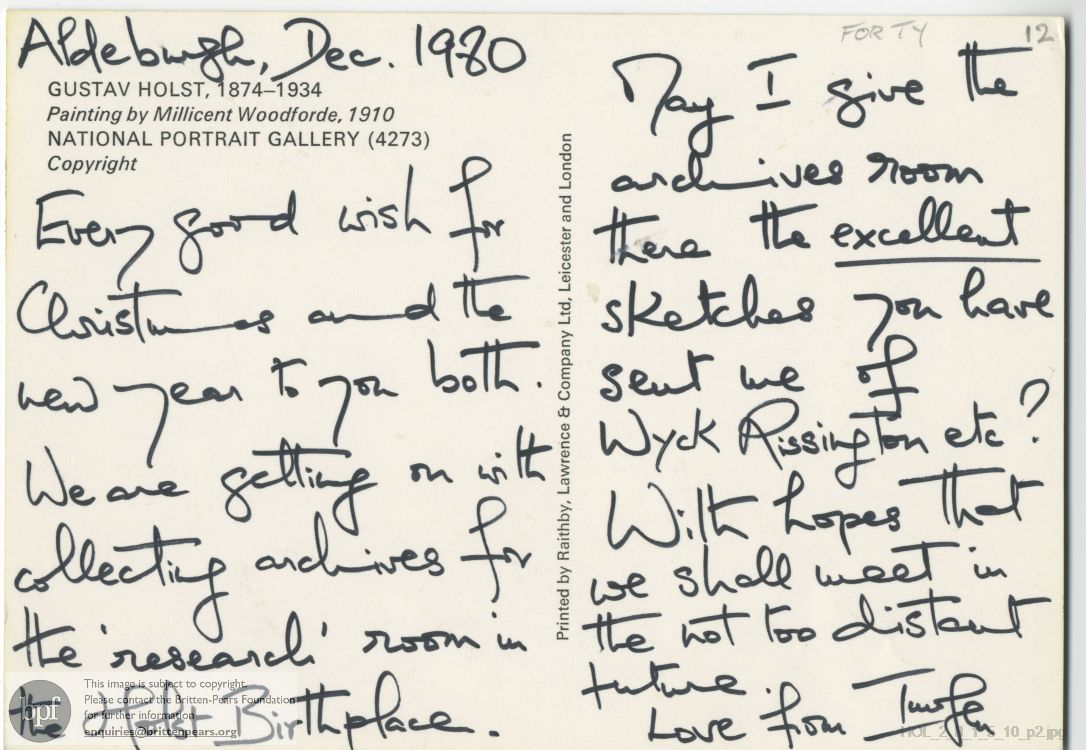 Aldeburgh, Dec. 1980
GUSTAV HOLST, 1874–1934
Painting by Millicent Woodforde, 1910
NATIONAL PORTRAIT GALLERY (4273)
Copyright
Every good wish for
Christmas and the
new year to you both.
We are getting on with
collecting archives for
the 'research' room in
the Holst Birthplace.
Printed by Raithby, Lawrence & Company Ltd, Leicester and London
FORTY 12
May I give the
archives room
there the excellent
sketches you have
sent me of
Wyck Rissington etc?
With hopes that
we shall meet in
the not too distant
future.
Love from Imogen
bpf
This image is subject to copyright.
Please contact the Britten-Pears Foundation
for further information
enquiries@brittenpears.org